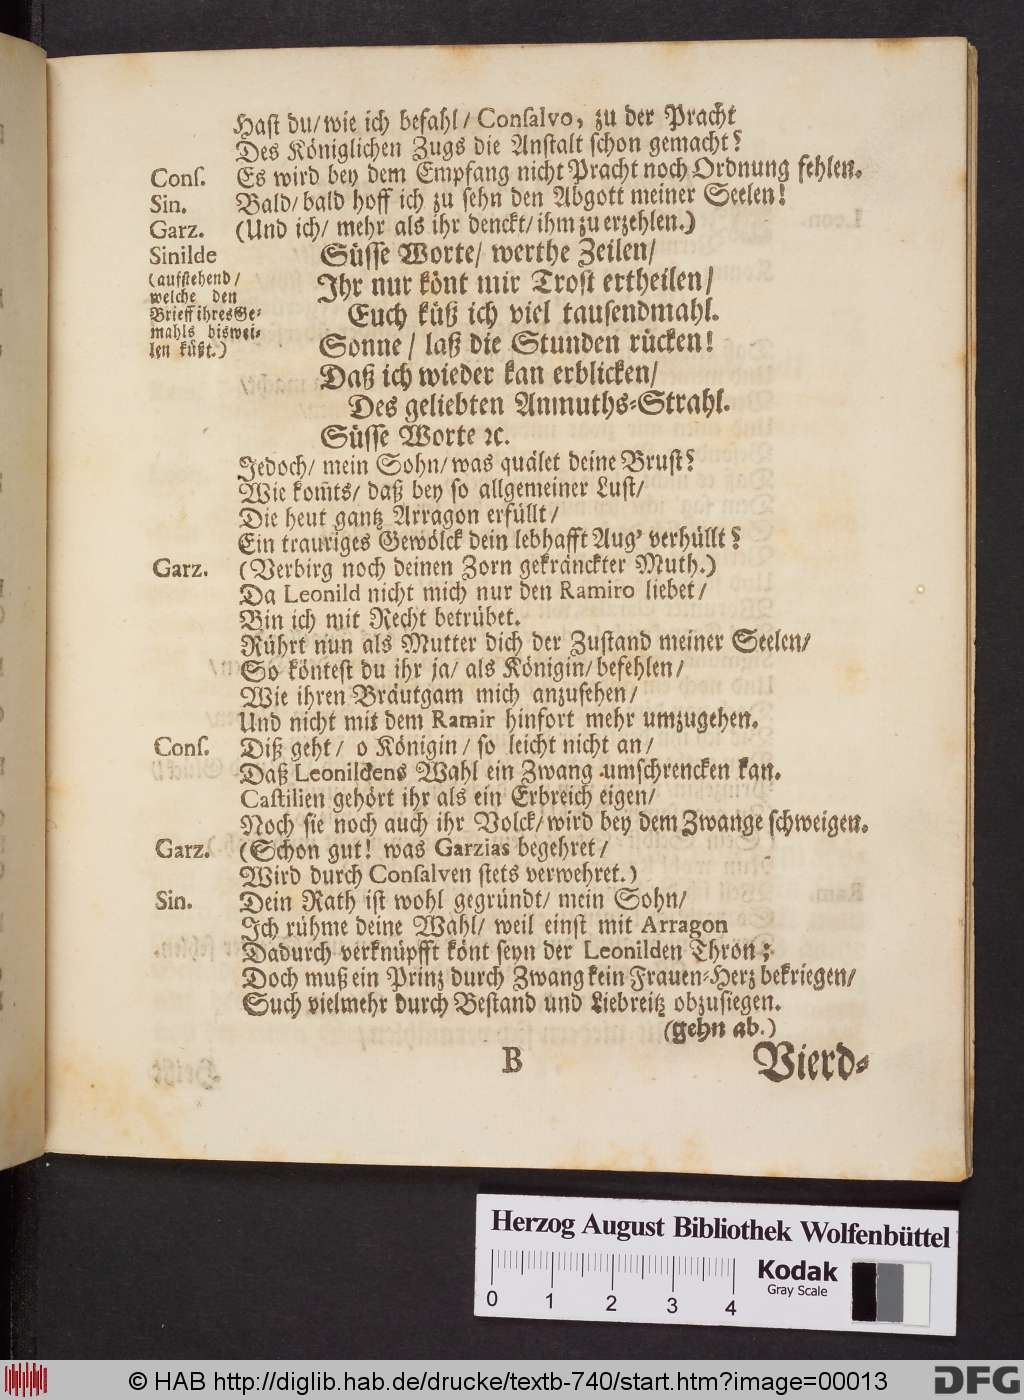 Hast du/ wie ich befahl/ Conſalvo, zu der Pracht
Des Königlichen Zugs die Anſtalt ſchon gemacht?
Conſ. Es wird bey dem Empfang nicht Pracht noch Ordnung fehlen.
Sin. Bald/ bald hoff ich zu ſehn den Abgott meiner Seelen!
Garz. (Und ich/ mehr als ihr denckt/ ihm zu erzehlen.)
Sinilde Süſſe Worte/ werthe Zeilen/
(aufſtehend/
welche den
Brieff ihres Ge-
mahls biswei-
len küßt.)
Ihr nur könt mir Troſt ertheilen/
Euch küß ich viel tauſendmahl.
Sonne/ laß die Stunden rücken!
Daß ich wieder kan erblicken/
Des geliebten Anmuths-Strahl.
Süſſe Worte ꝛc.
Jedoch/ mein Sohn/ was quälet deine Bruſt?
Wie kom̃ts/ daß bey ſo allgemeiner Luſt/
Die heut gantz Arragon erfüllt/
Ein trauriges Gewölck dein lebhafft Aug' verhüllt?
Garz. (Verbirg noch deinen Zorn gekränckter Muth.)
Da Leonild nicht mich nur den Ramiro liebet/
Bin ich mit Recht betrübet.
Rührt nun als Mutter dich der Zuſtand meiner Seelen/
So könteſt du ihr ja/ als Königin/ befehlen/
Wie ihren Bräutgam mich anzuſehen/
Und nicht mit dem Ramir hinfort mehr umzugehen.
Conſ. Diß geht/ o Königin/ ſo leicht nicht an/
Daß Leonildens Wahl ein Zwang umſchrencken kan.
Caſtilien gehört ihr als ein Erbreich eigen/
Noch ſie noch auch ihr Volck/ wird bey dem Zwange ſchweigen.
Garz. (Schon gut! was Garzias begehret/
Wird durch Conſalven ſtets verwehret.)
Sin. Dein Rath iſt wohl gegründt/ mein Sohn/
Ich rühme deine Wahl/ weil einſt mit Arragon
Dadurch verknüpfft könt ſeyn der Leonilden Thron;
Doch muß ein Prinz durch Zwang kein Frauen-Herz bekriegen/
Such vielmehr durch Beſtand und Liebreitz obzuſiegen.
(gehn ab.)
B Vierd-
Herzog August Bibliothek Wolfenbüttel
Kodak
Gray Scale
0 1 2 3 4
© HAB http://diglib.hab.de/drucke/textb-740/start.htm?image=00013
DFG